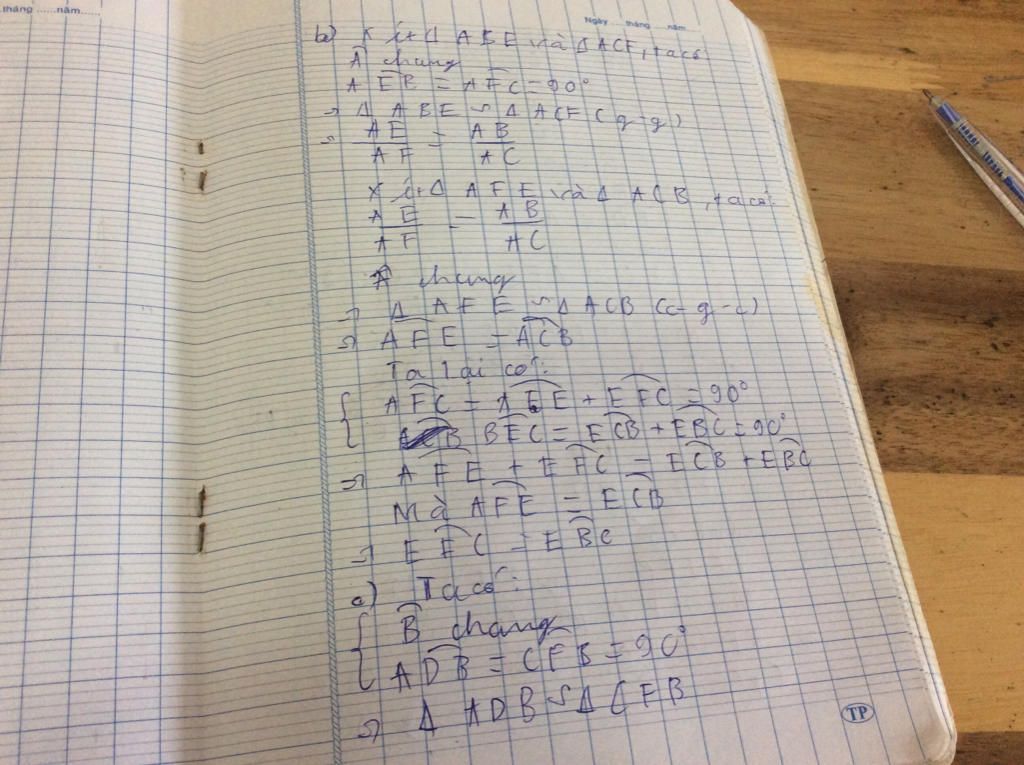 tháng ......năm......
Ngày......tháng......năm......
b) Xét Δ ABE và Δ ACF, ta có
Â chung
AÊB = AF̂C = 90°
=> Δ ABE ∽ Δ ACF (g-g)
=> AE/AF = AB/AC
Xét Δ AFE và Δ ACB, ta có:
AE/AF = AB/AC
Â chung
=> Δ AFE ∽ Δ ACB (c-g-c)
=> AF̂E = AĈB
Ta lại có:
{ AF̂C = AF̂E + EF̂C = 90°
BÊC = EĈB + EB̂C = 90°
=> AF̂E + EF̂C = EĈB + EB̂C
Mà AF̂E = EĈB
=> EF̂C = EB̂C
c) Ta có:
{ B̂ chung
AD̂B = CF̂B = 90°
=> Δ ADB ∽ Δ CFB
TP